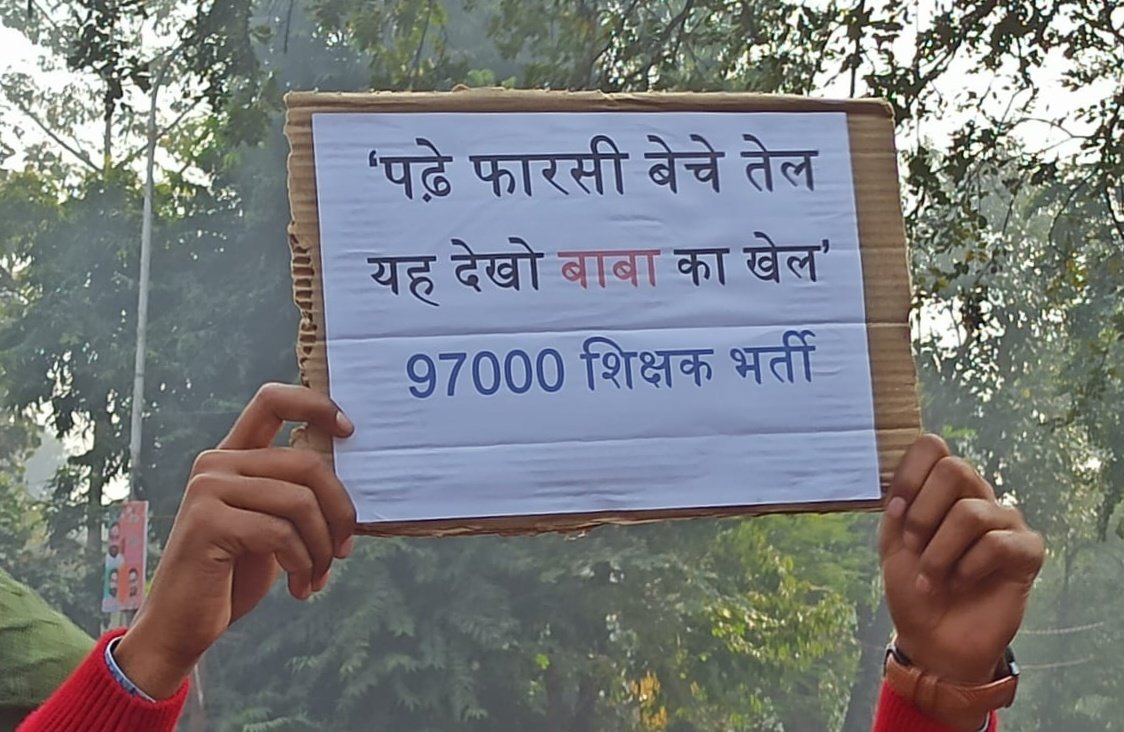 ‘पढ़े फारसी बेचे तेल
यह देखो बाबा का खेल’
97000 शिक्षक भर्ती